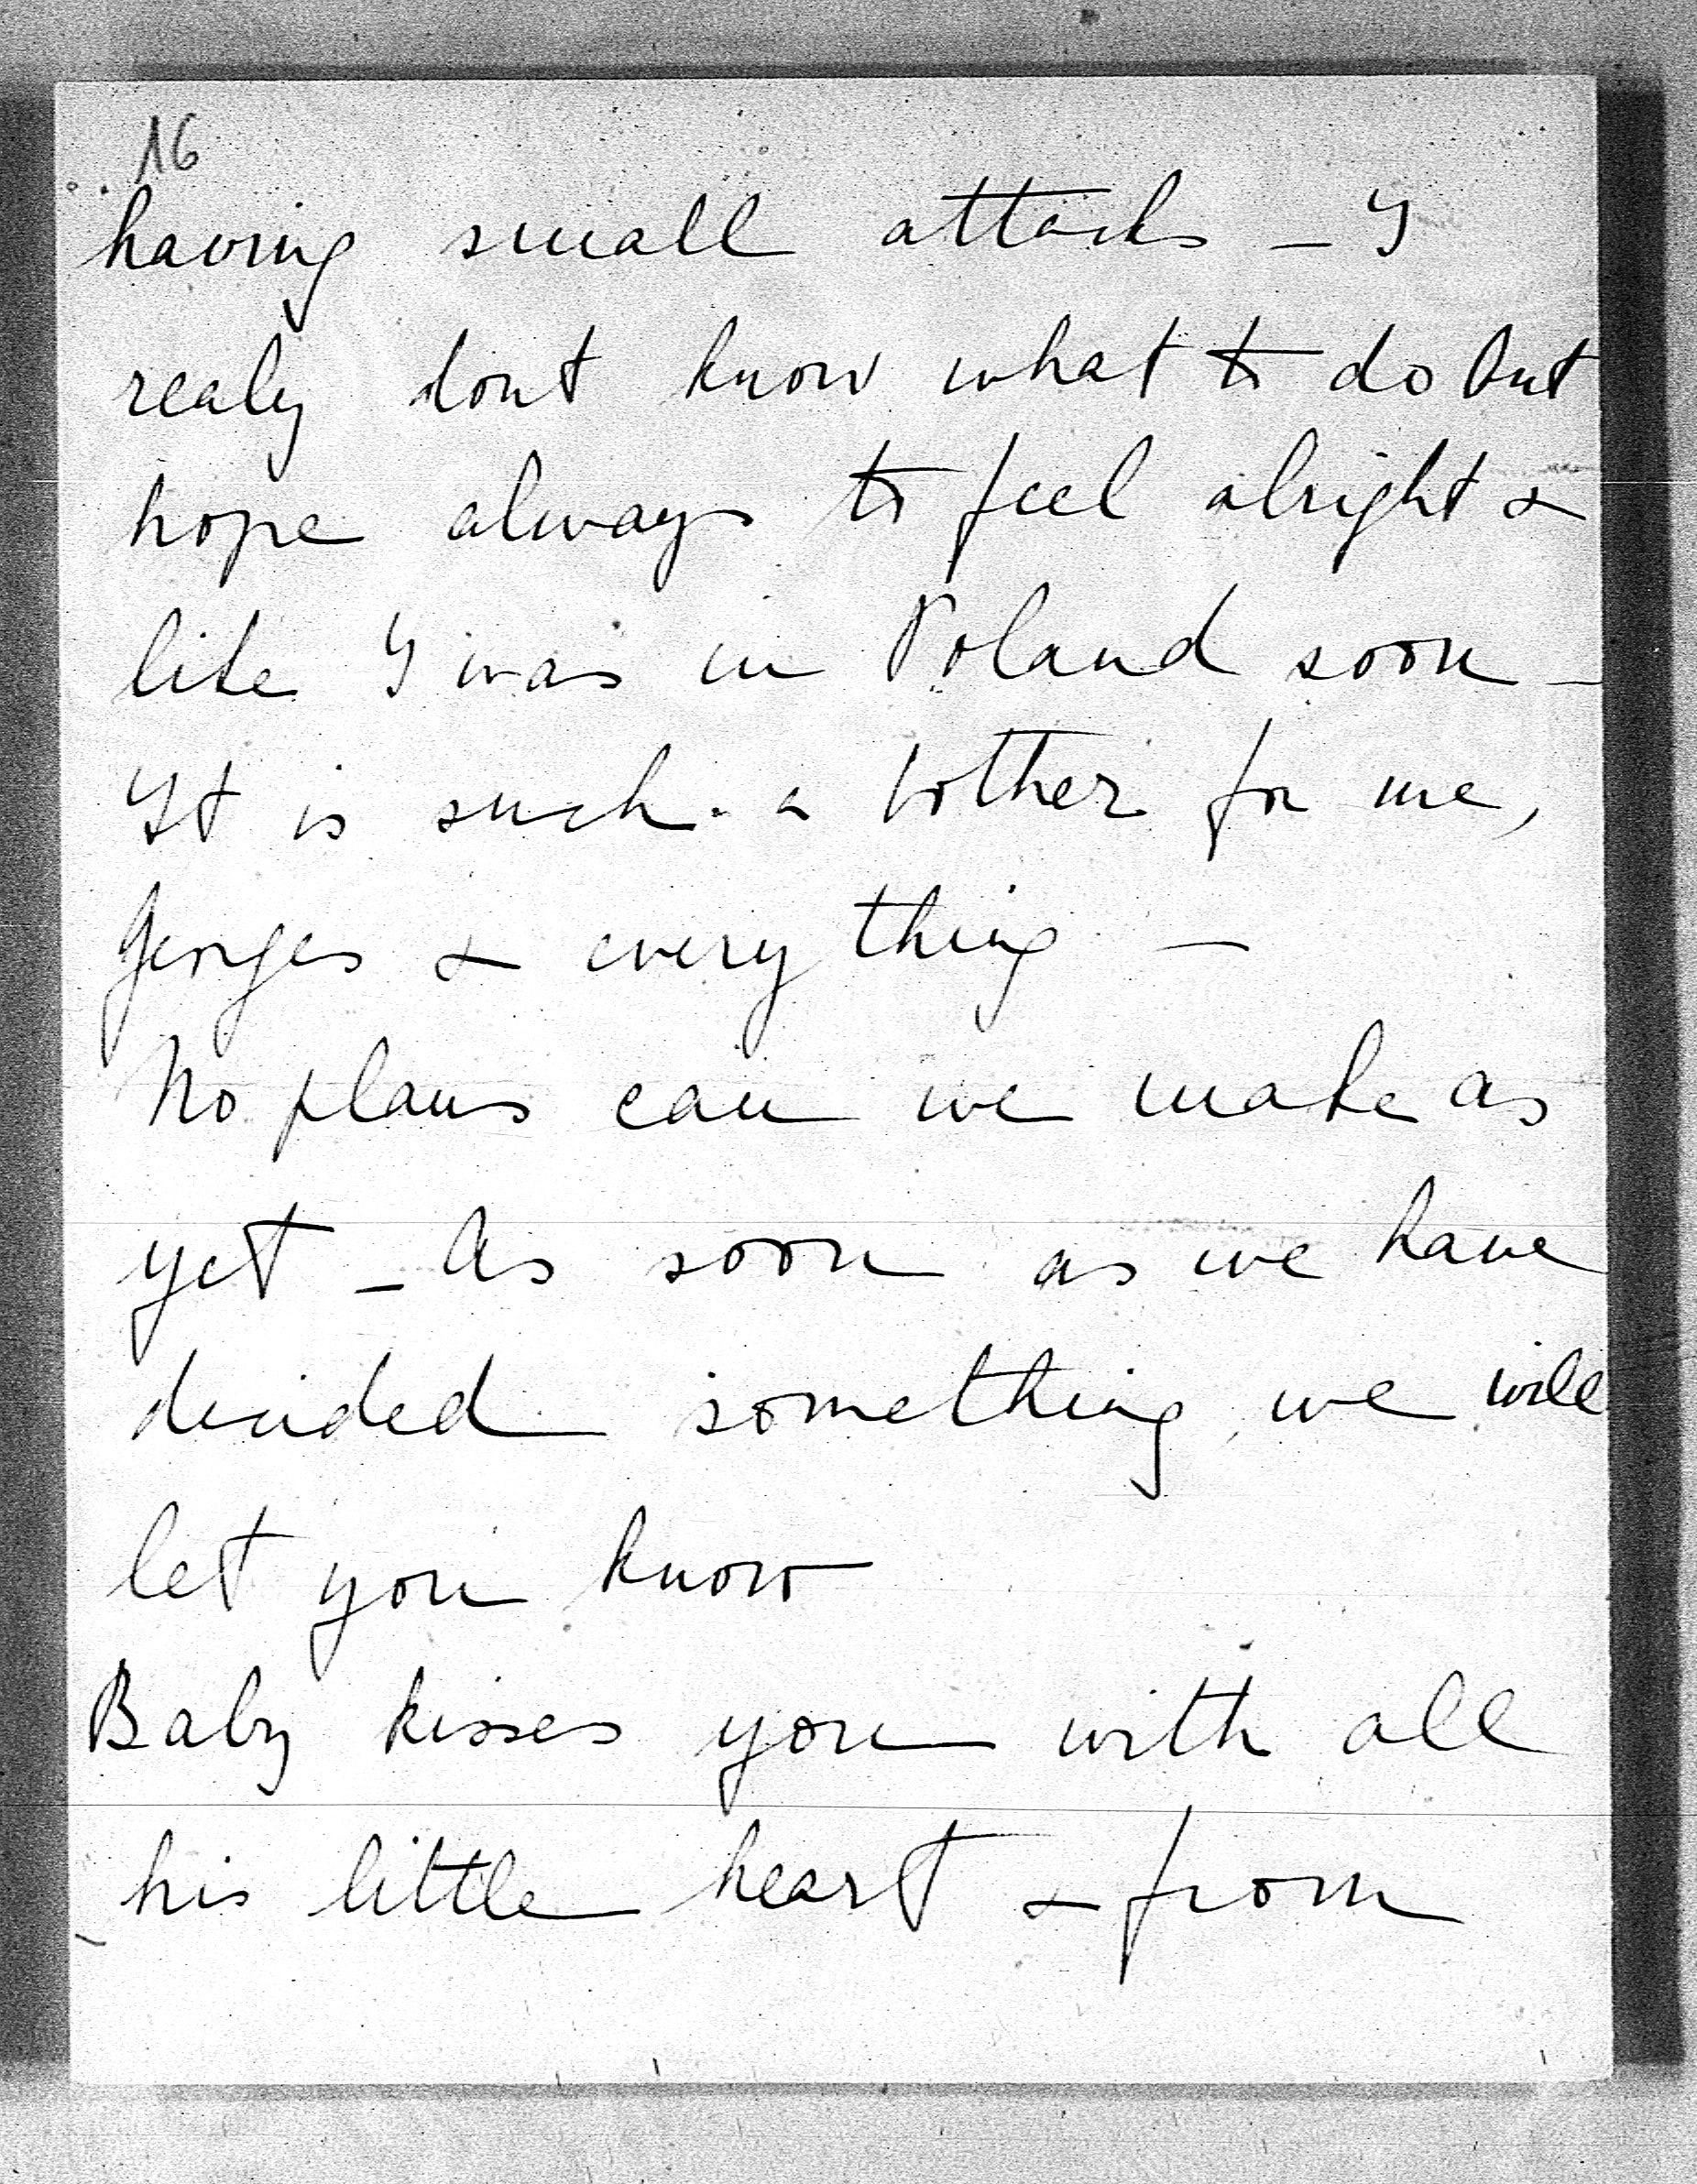 16
having small attacks - I
realy dont know what to do but
hope always to feel alright &
like I was in Poland soon -
It is such a bother for me,
Georges & every thing -
No plans can we make as
yet - As soon as we have
decided something, we will
let you know
Baby kisses you with all
his little heart & from